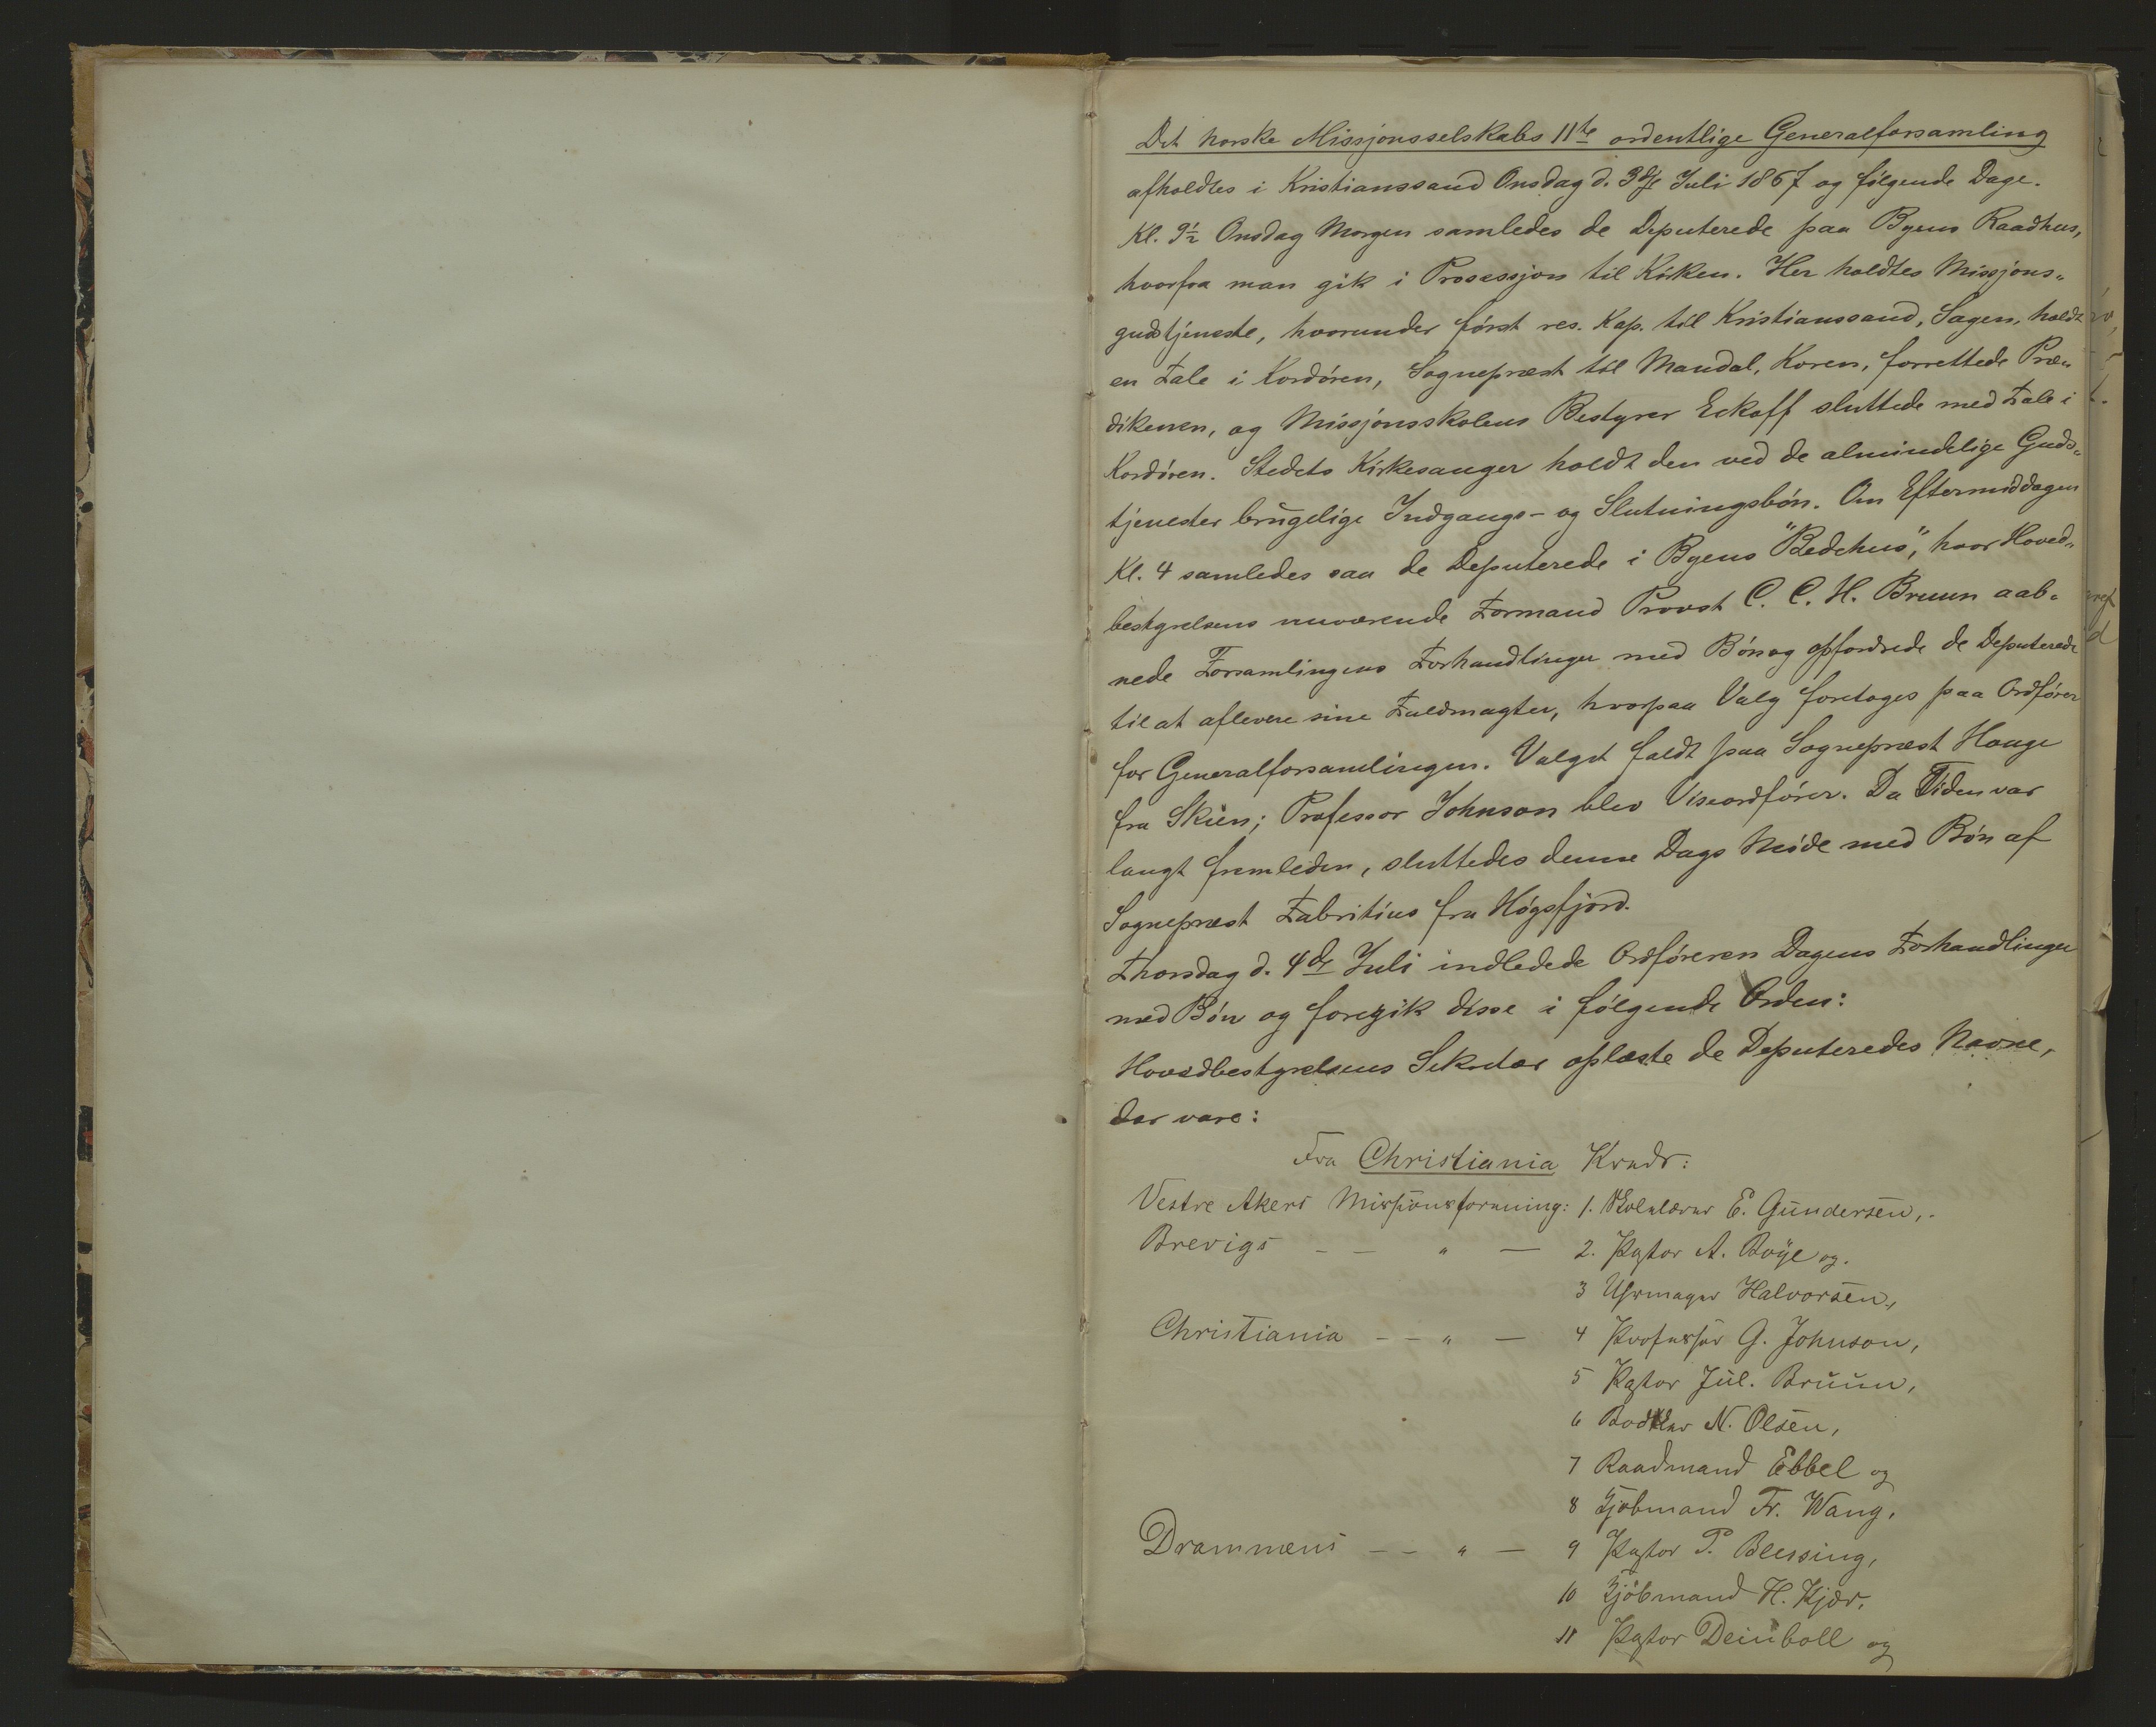 Det norske Missjonsselskabs 11te ordentlige Generalforsamling
afholdtes i Kristianssand Onsdag d. 3dje Juli 1867 og følgende Dage.
Kl. 9½ Onsdag Morgen samledes de Deputerede paa Byens Raadhus,
hvorfra man gik i Prosessjon til Kirken. Her holdtes Missjons„
gudstjeneste, hvorunder først res. Kap. til Kristianssand, Sagen, holdt
en Tale i Kordøren, Sognepræst til Mandal, Koren, forrettede Præ„
dikenen, og Missjonsskolens Bestyrer Eckoff sluttede med Tale i
Kordøren. Stedets Kirkesanger holdt den ved de almindelige Guds„
tjenester brugelige Indgangs- og Slutningsbøn. Om Eftermiddagen
Kl. 4 samledes saa de Deputerede i Byens "Bedehus", hvor Hoved„
bestyrelsens nuværende Formand Provst C. C. H. Bruun aab„
nede Forsamlingens Forhandlinger med Bøn og opfordrede de Deputerede
til at aflevere sine Fuldmagter, hvorpaa Valg foretoges paa Ordfører
for Generalforsamlingen. Valget faldt paa Sognepræst Hauge
fra Skien; Professor Johnson blev Viseordfører. Da Tiden var
langt fremleden, sluttedes denne Dags Møde med Bøn af
Sognepræst Fabritius fra Høgsfjord.
Thorsdag d. 4de Juli indledede Ordføreren Dagens Forhandlinger
med Bøn og foregik disse i følgende Orden:
Hovedbestyrelsens Sekretær oplæste de Deputeredes Navne,
der vare:
Fra Christiania Kreds:
Vestre Akers Missionsforening: 1. Skolelærer E. Gundersen,
Brevigs — — „ — 2. Pastor A. Boye og
3 Uhrmager Halvorsen,
Christiania — — „ — 4 Professor G. Johnson,
5 Pastor Jul. Bruun,
6 N. Olsen,
7 Raadmand Ebbel og
8 Kjøbmand Fr. Wang,
Drammens — — „ — 9 Pastor P. Blessing,
10 Kjøbmand H. Kjær,
11 Pastor Deinboll og